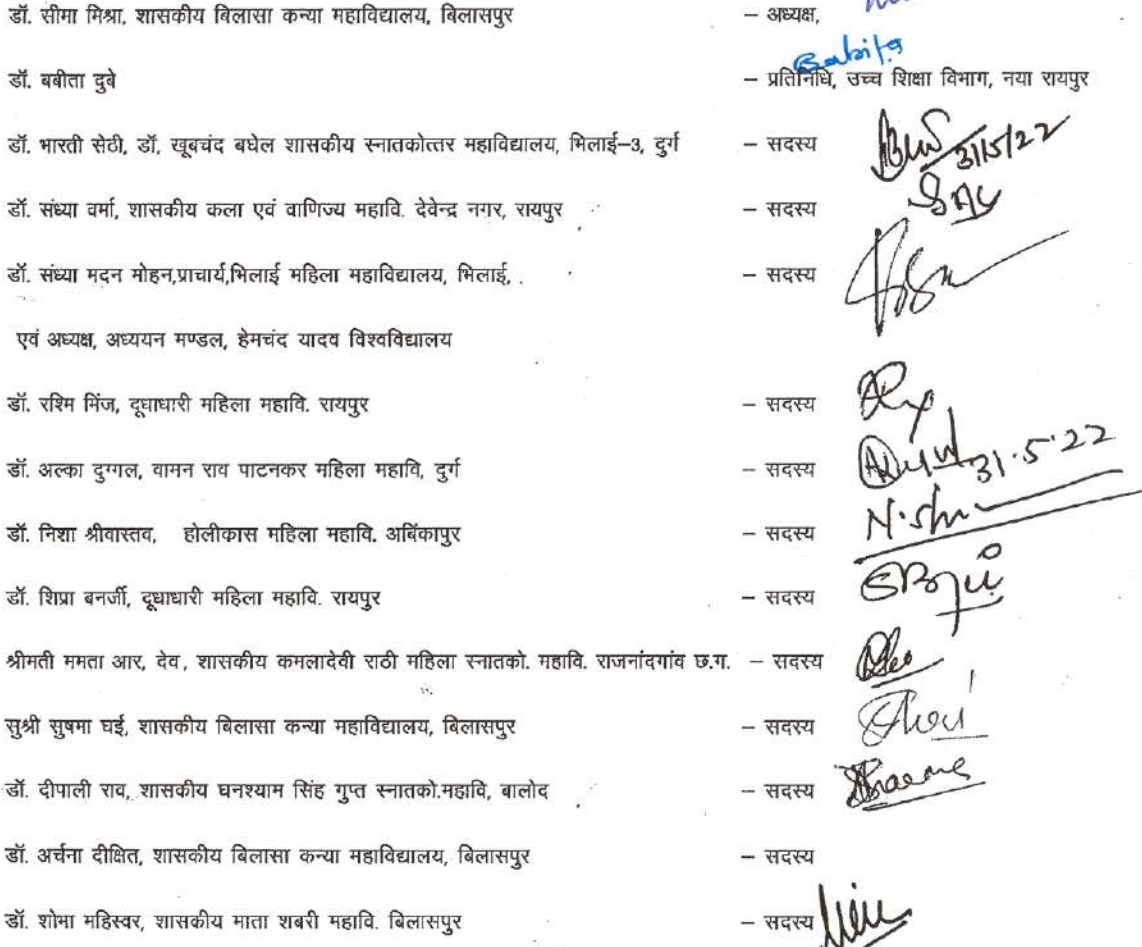 डॉ. सीमा मिश्रा, शासकीय बिलासा कन्या महाविद्यालय, बिलासपुर – अध्यक्ष,
Babita
डॉ. बबीता दुबे – प्रतिनिधि, उच्च शिक्षा विभाग, नया रायपुर
डॉ. भारती सेठी, डॉ, खूबचंद बघेल शासकीय स्नातकोत्तर महाविद्यालय, भिलाई–3, दुर्ग – सदस्य 31/5/22
डॉ. संध्या वर्मा, शासकीय कला एवं वाणिज्य महावि. देवेन्द्र नगर, रायपुर – सदस्य
डॉ. संध्या मदन मोहन,प्राचार्य,भिलाई महिला महाविद्यालय, भिलाई, – सदस्य
एवं अध्यक्ष, अध्ययन मण्डल, हेमचंद यादव विश्वविद्यालय
डॉ. रश्मि मिंज, दूधाधारी महिला महावि. रायपुर – सदस्य
डॉ. अल्का दुग्गल, वामन राव पाटनकर महिला महावि, दुर्ग – सदस्य 31.5.22
डॉ. निशा श्रीवास्तव, होलीकास महिला महावि. अबिंकापुर – सदस्य
डॉ. शिप्रा बनर्जी, दूधाधारी महिला महावि. रायपुर – सदस्य
श्रीमती ममता आर, देव, शासकीय कमलादेवी राठी महिला स्नातको. महावि. राजनांदगांव छ.ग. – सदस्य
सुश्री सुषमा घई, शासकीय बिलासा कन्या महाविद्यालय, बिलासपुर – सदस्य
डॉ. दीपाली राव, शासकीय घनश्याम सिंह गुप्त स्नातको.महावि, बालोद – सदस्य
डॉ. अर्चना दीक्षित, शासकीय बिलासा कन्या महाविद्यालय, बिलासपुर – सदस्य
डॉ. शोभा महिस्वर, शासकीय माता शबरी महावि. बिलासपुर – सदस्य